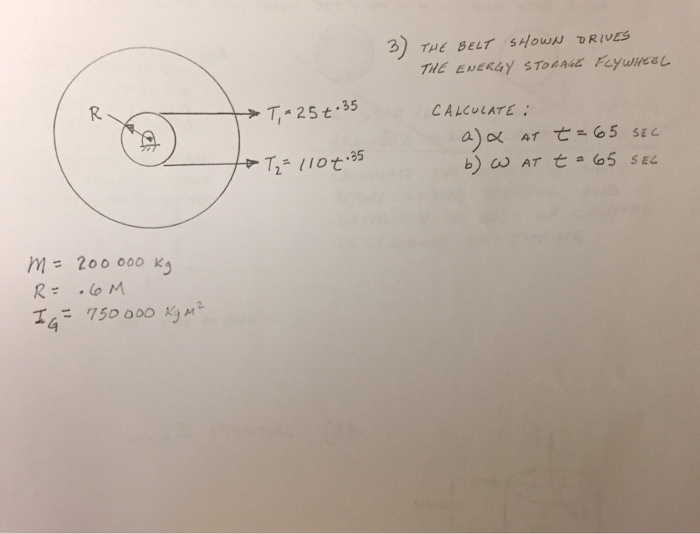 3) THE BELT SHOWN DRIVES
THE ENERGY STORAGE FLYWHEEL
R
T₁ = 25t^.35
T₂ = 110t^.35
CALCULATE:
a) α AT t = 65 SEC
b) ω AT t = 65 SEC
M = 200 000 Kg
R = .6 M
I_G = 750 000 Kg M²